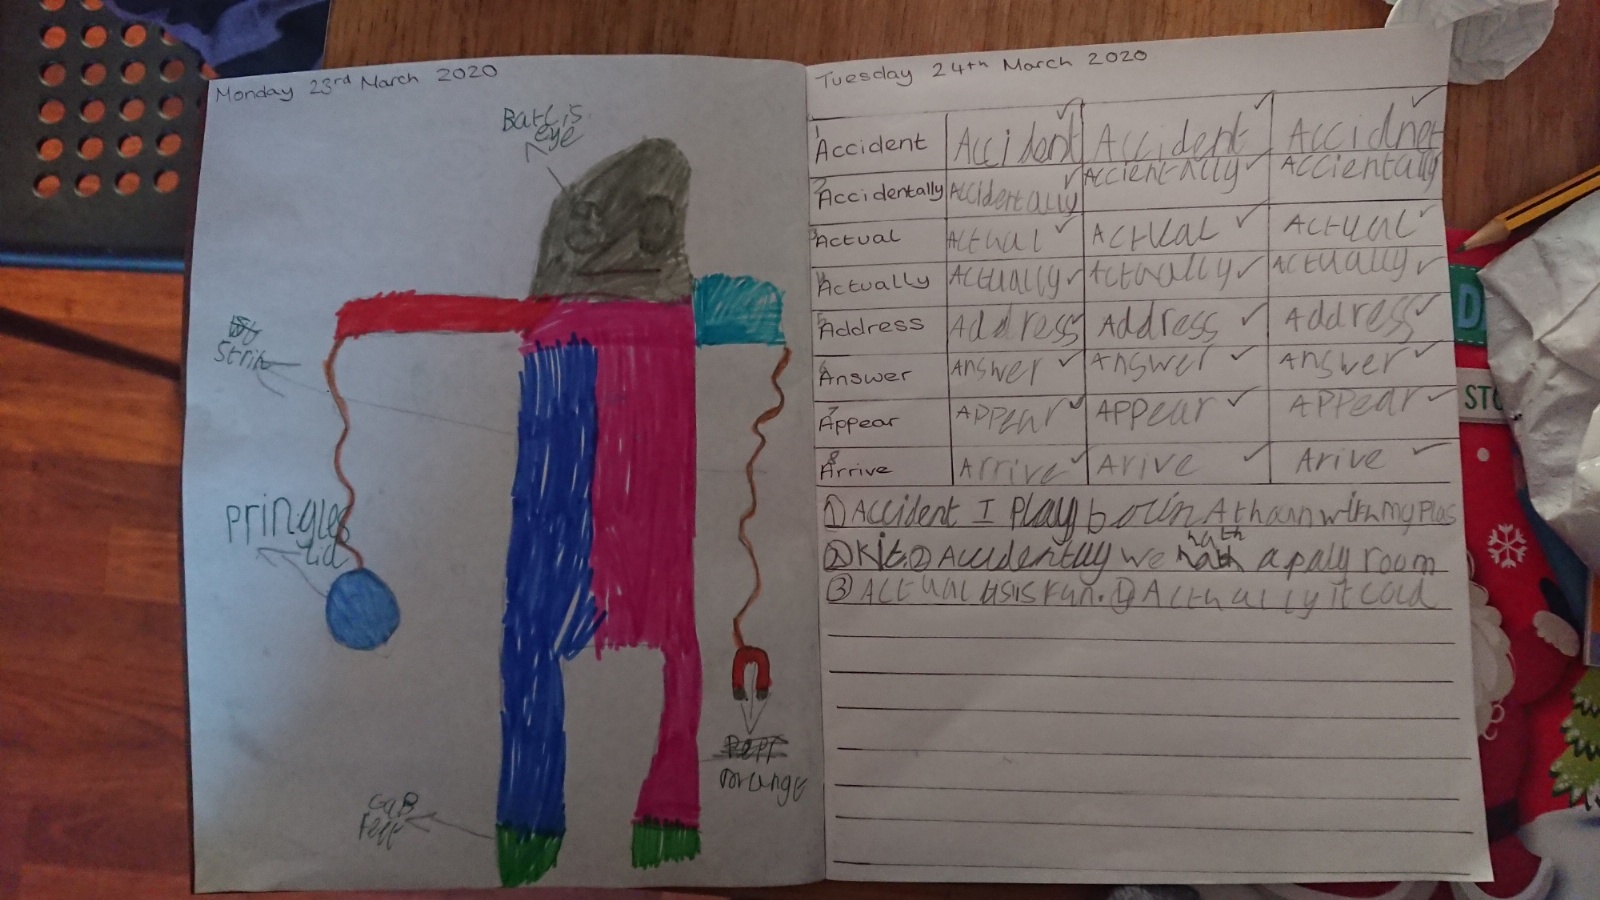 Monday 23rd March 2020
eye
Pringles
Lid
orange
Tuesday 24th March 2020
1 Accident Accident Accident Accidnet
2 Accidentally Accidentally Accientally Accientally
3 Actual Actual Actual Actual
4 Actually Actually Actually Actually
5 Address Address Address Address
6 Answer Answer Answer Answer
7 Appear Appear Appear Appear
8 Arrive Arrive Arive Arive
① Accident I Play with my Plas
② Kit. ② Accidentally we hath a paly room
③ Actual is Fun. ④ Actually it
D
STO